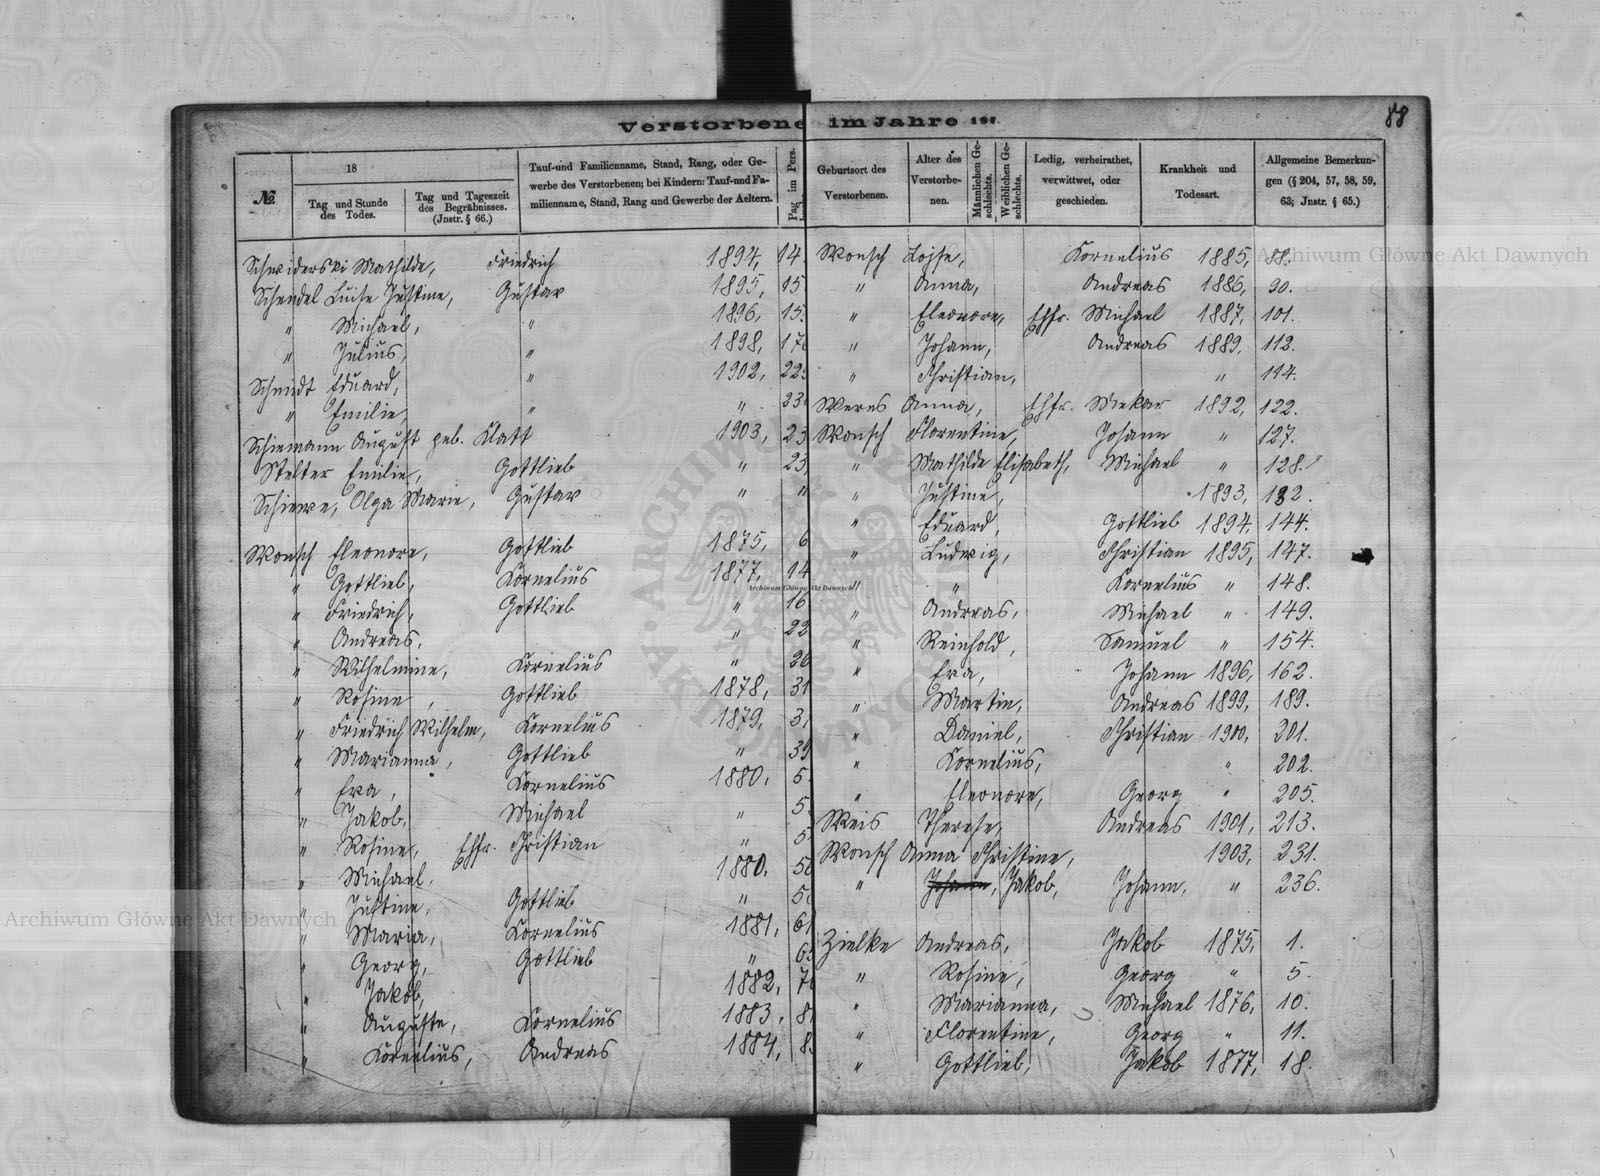 88
Verstorbene im Jahre 186
№
18
Tag und Stunde des Todes.
Tag und Tageszeit des Begräbnisses. (Jnstr. § 66.)
Tauf-und Familienname, Stand, Rang, oder Ge-
werbe des Verstorbenen; bei Kindern: Tauf-und Fa-
milienname, Stand, Rang und Gewerbe der Aeltern.
Pag im Pers.
Geburtsort des Verstorbenen.
Alter des Verstorbe-nen.
Männlichen Ge-schlechts.
Weiblichen Ge-schlechts.
Ledig, verheirathet, verwittwet, oder geschieden.
Krankheit und Todesart.
Allgemeine Bemerkun-
gen (§ 204, 57, 58, 59,
63; Jnstr. § 65.)
Schwiderski Mathilde, Friedrich 1894, 14
Schendel Luise Justine, Gustav 1895, 15
" Michael, " 1896, 15
" Julius, " 1898, 17
Schmidt Eduard, " 1902, 22
" Emilie, " " 23
Schiemann August geb. Klatt 1903, 23
Stelter Emilie, Gottlieb " 23
Schiewe, Olga Marie, Gustav " "
Wonsch Eleonore, Gottlieb 1875, 6
" Gottlieb, Kornelius 1877, 14
" Friedrich, Gottlieb " 16
" Andreas, " 22
" Wilhelmine, Kornelius " 26
" Rosine, Gottlieb 1878, 31
" Friedrich Wilhelm, Kornelius 1879, 3
" Marianna, Gottlieb " 39
" Eva, Kornelius 1880, 5
" Jakob, Michael " 5
" Rosine, Ehfr. Christian " 5
" Michael, 1880, 5
" Justine, Gottlieb " 5
" Maria, Kornelius 1881, 61
" Georg, Gottlieb " 6
" Jakob, 1882, 7
" Auguste, Kornelius 1883, 8
" Kornelius, Andreas 1884, 8
Wonsch Lojse, Kornelius 1885, 88.
" Anna, Andreas 1886, 90.
" Eleonore, Ehfr. Michael 1887, 101.
" Johann, Andreas 1889, 112.
" Christian, " 114.
Werns Anna, Ehfr. Mekar 1892, 122.
Wonsch Florentine, Johann " 127.
" Mathilde Elisabeth, Michael " 128.
" Justine, 1893, 132.
" Eduard, Gottlieb 1894, 144.
" Ludwig, Christian 1895, 147.
" " Kornelius " 148.
" Andreas, Michael " 149.
" Reinhold, Samuel " 154.
" Eva, Johann 1896, 162.
" Martin, Andreas 1899, 189.
" Daniel, Christian 1900, 201.
" Kornelius, " 202.
" Eleonore, Georg " 205.
Weis Therese, Andreas 1901, 213.
Wonsch Anna Christine, 1903, 231.
" Johann, Jakob, Johann, " 236.
Zielke Andreas, Jakob 1875, 1.
" Rosine, Georg " 5.
" Marianna, Michael 1876, 10.
" Florentine, Georg " 11.
" Gottlieb, Jakob 1877, 18.
Archiwum Główne Akt Dawnych
Archiwum Główne Akt Dawnych
Archiwum Główne Akt Dawnych